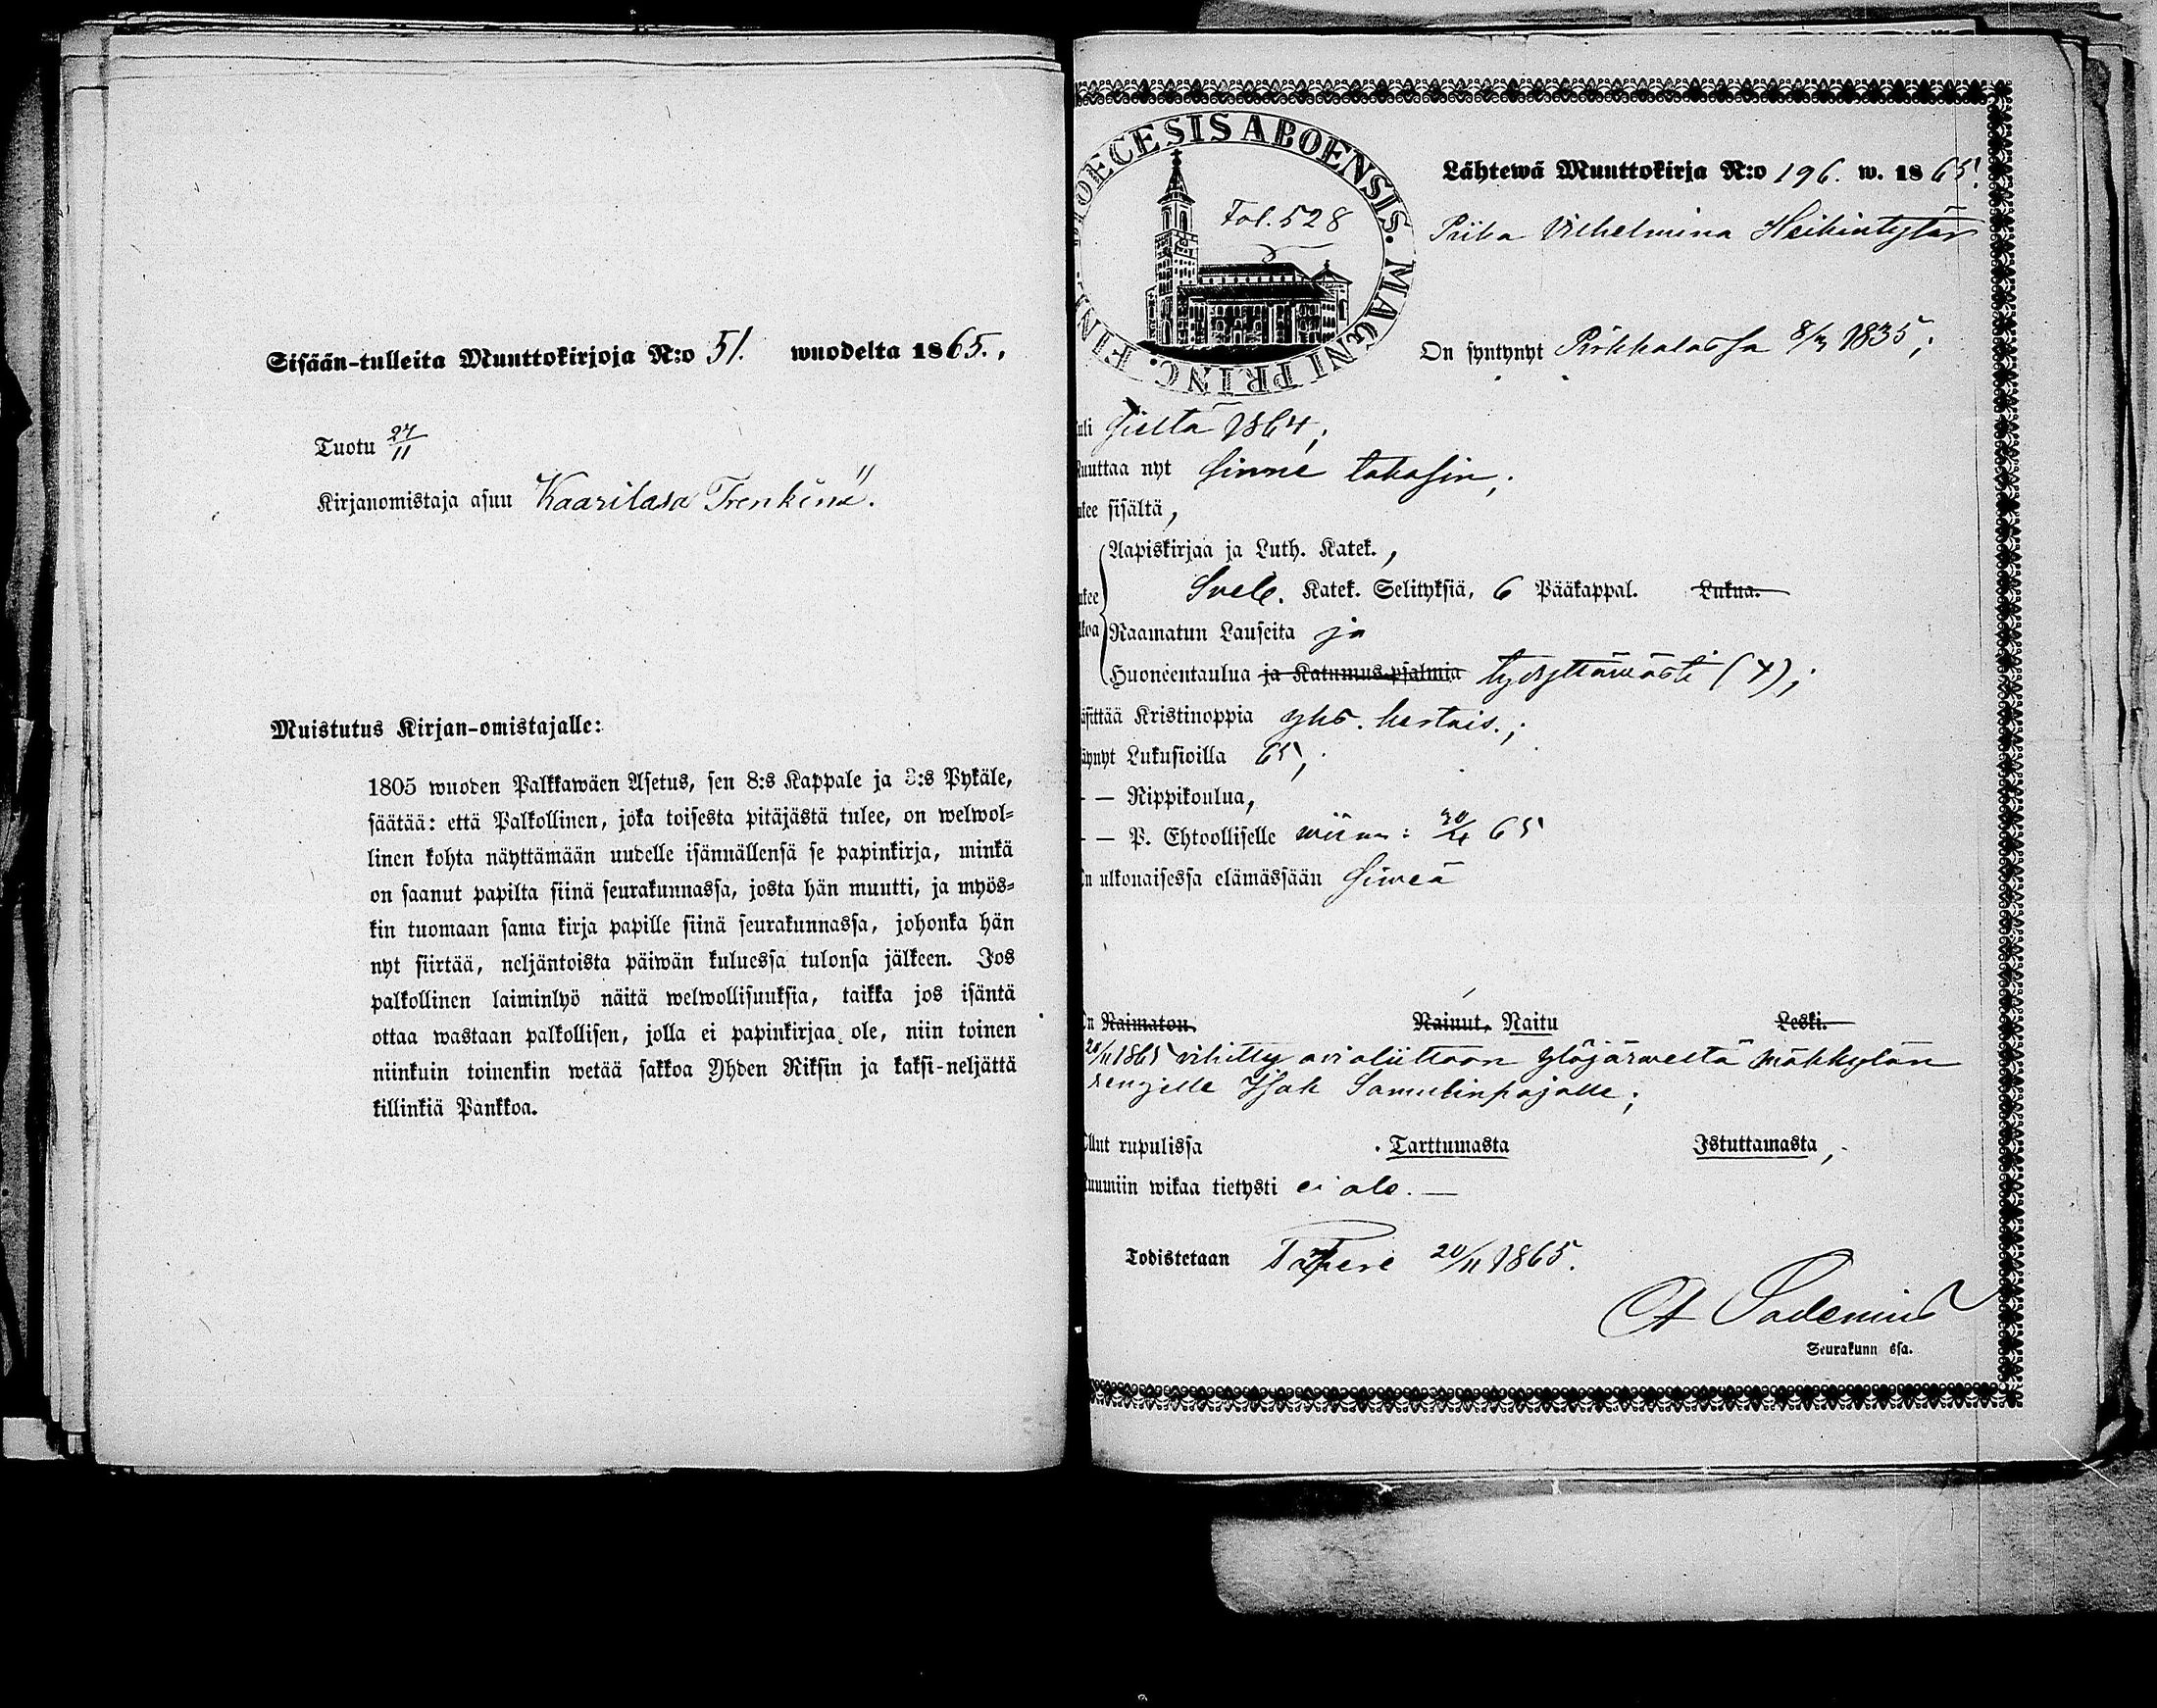 Sisään-tulleita Muuttokirjoja N:o 51. wuodelta 1865.
Tuotu 27/11
Kirjanomistaja asuu Kaarilasa Trenkinä.
Muistutus Kirjan-omistajalle:
1805 wuoden Palkkawäen Asetus, sen 8:s Kappale ja 3:s Pykäle,
säätää: että Palkollinen, joka toisesta pitäjästä tulee, on welwol-
linen kohta näyttämään uudelle isännällensä se papinkirja, minkä
on saanut papilta siinä seurakunnassa, josta hän muutti, ja myös-
kin tuomaan sama kirja papille siinä seurakunnassa, johonka hän
nyt siirtää, neljäntoista päiwän kuluessa tulonsa jälkeen. Jos
palkollinen laiminlyö näitä welwollisuuksia, taikka jos isäntä
ottaa wastaan palkollisen, jolla ei papinkirjaa ole, niin toinen
niinkuin toinenkin wetää sakkoa Yhden Riksin ja kaksi-neljättä
killinkiä Pankkoa.
DIOECESIS ABOENSIS. MAGNI PRINC. FINL.
Fol. 528
Lähtewä Muuttokirja N:o 196. w. 1865.
Piika Vilhelmina Heikintytär
On syntynyt Pirkkalassa 8/3 1835;
uli sieltä 1864;
uuttaa nyt sinne takasin;
kee sisältä,
Aapiskirjaa ja Luth. Katek.,
ukee Sveb. Katek. Selityksiä, 6 Pääkappal. Lukua.
lkoa Raamatun Lauseita ja
Huoneentaulua ja Katumus-psalmia tydyttäwästi (x);
äsittää Kristinoppia yhs. kertais.;
äynyt Lukusioilla 65;
— — Rippikoulua,
— — P. Ehtoolliselle wiim: 30/4 65
n ulkonaisessa elämässään siweä
n Naimaton. Nainut, Naitu Leski.
20/11 1865 vihitty avioliittoon Ylöjärweltä Mäkkylän
rengille Isak Samulinpojalle;
llut rupulissa Tarttumasta Istuttamasta,
uumiin wikaa tietysti ei ole. —
Todistetaan 20/11 1865.
Seurakunn ssa.